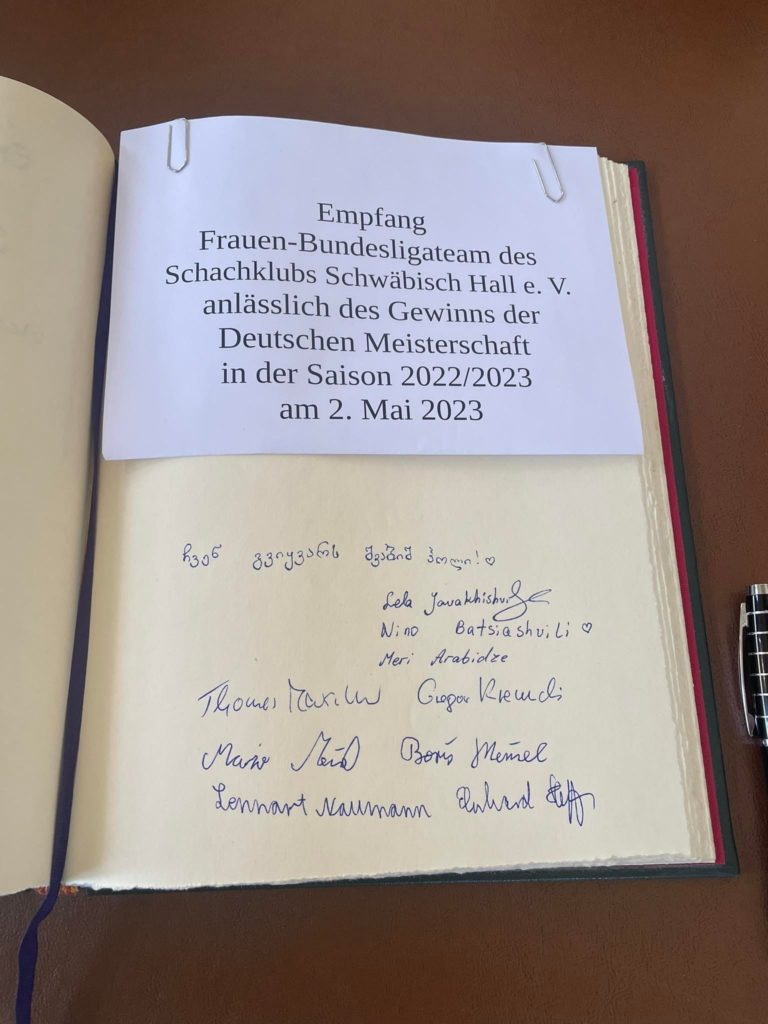 Empfang
Frauen-Bundesligateam des
Schachklubs Schwäbisch Hall e. V.
anlässlich des Gewinns der
Deutschen Meisterschaft
in der Saison 2022/2023
am 2. Mai 2023
ჩვენ გვიყვარს შვაბიშ ჰოლი! ♡
Lela Javakhishvili
Nino Batsiashvili ♡
Meri Arabidze
Thomas Gregor
Mario Boris
Lennart Naumann